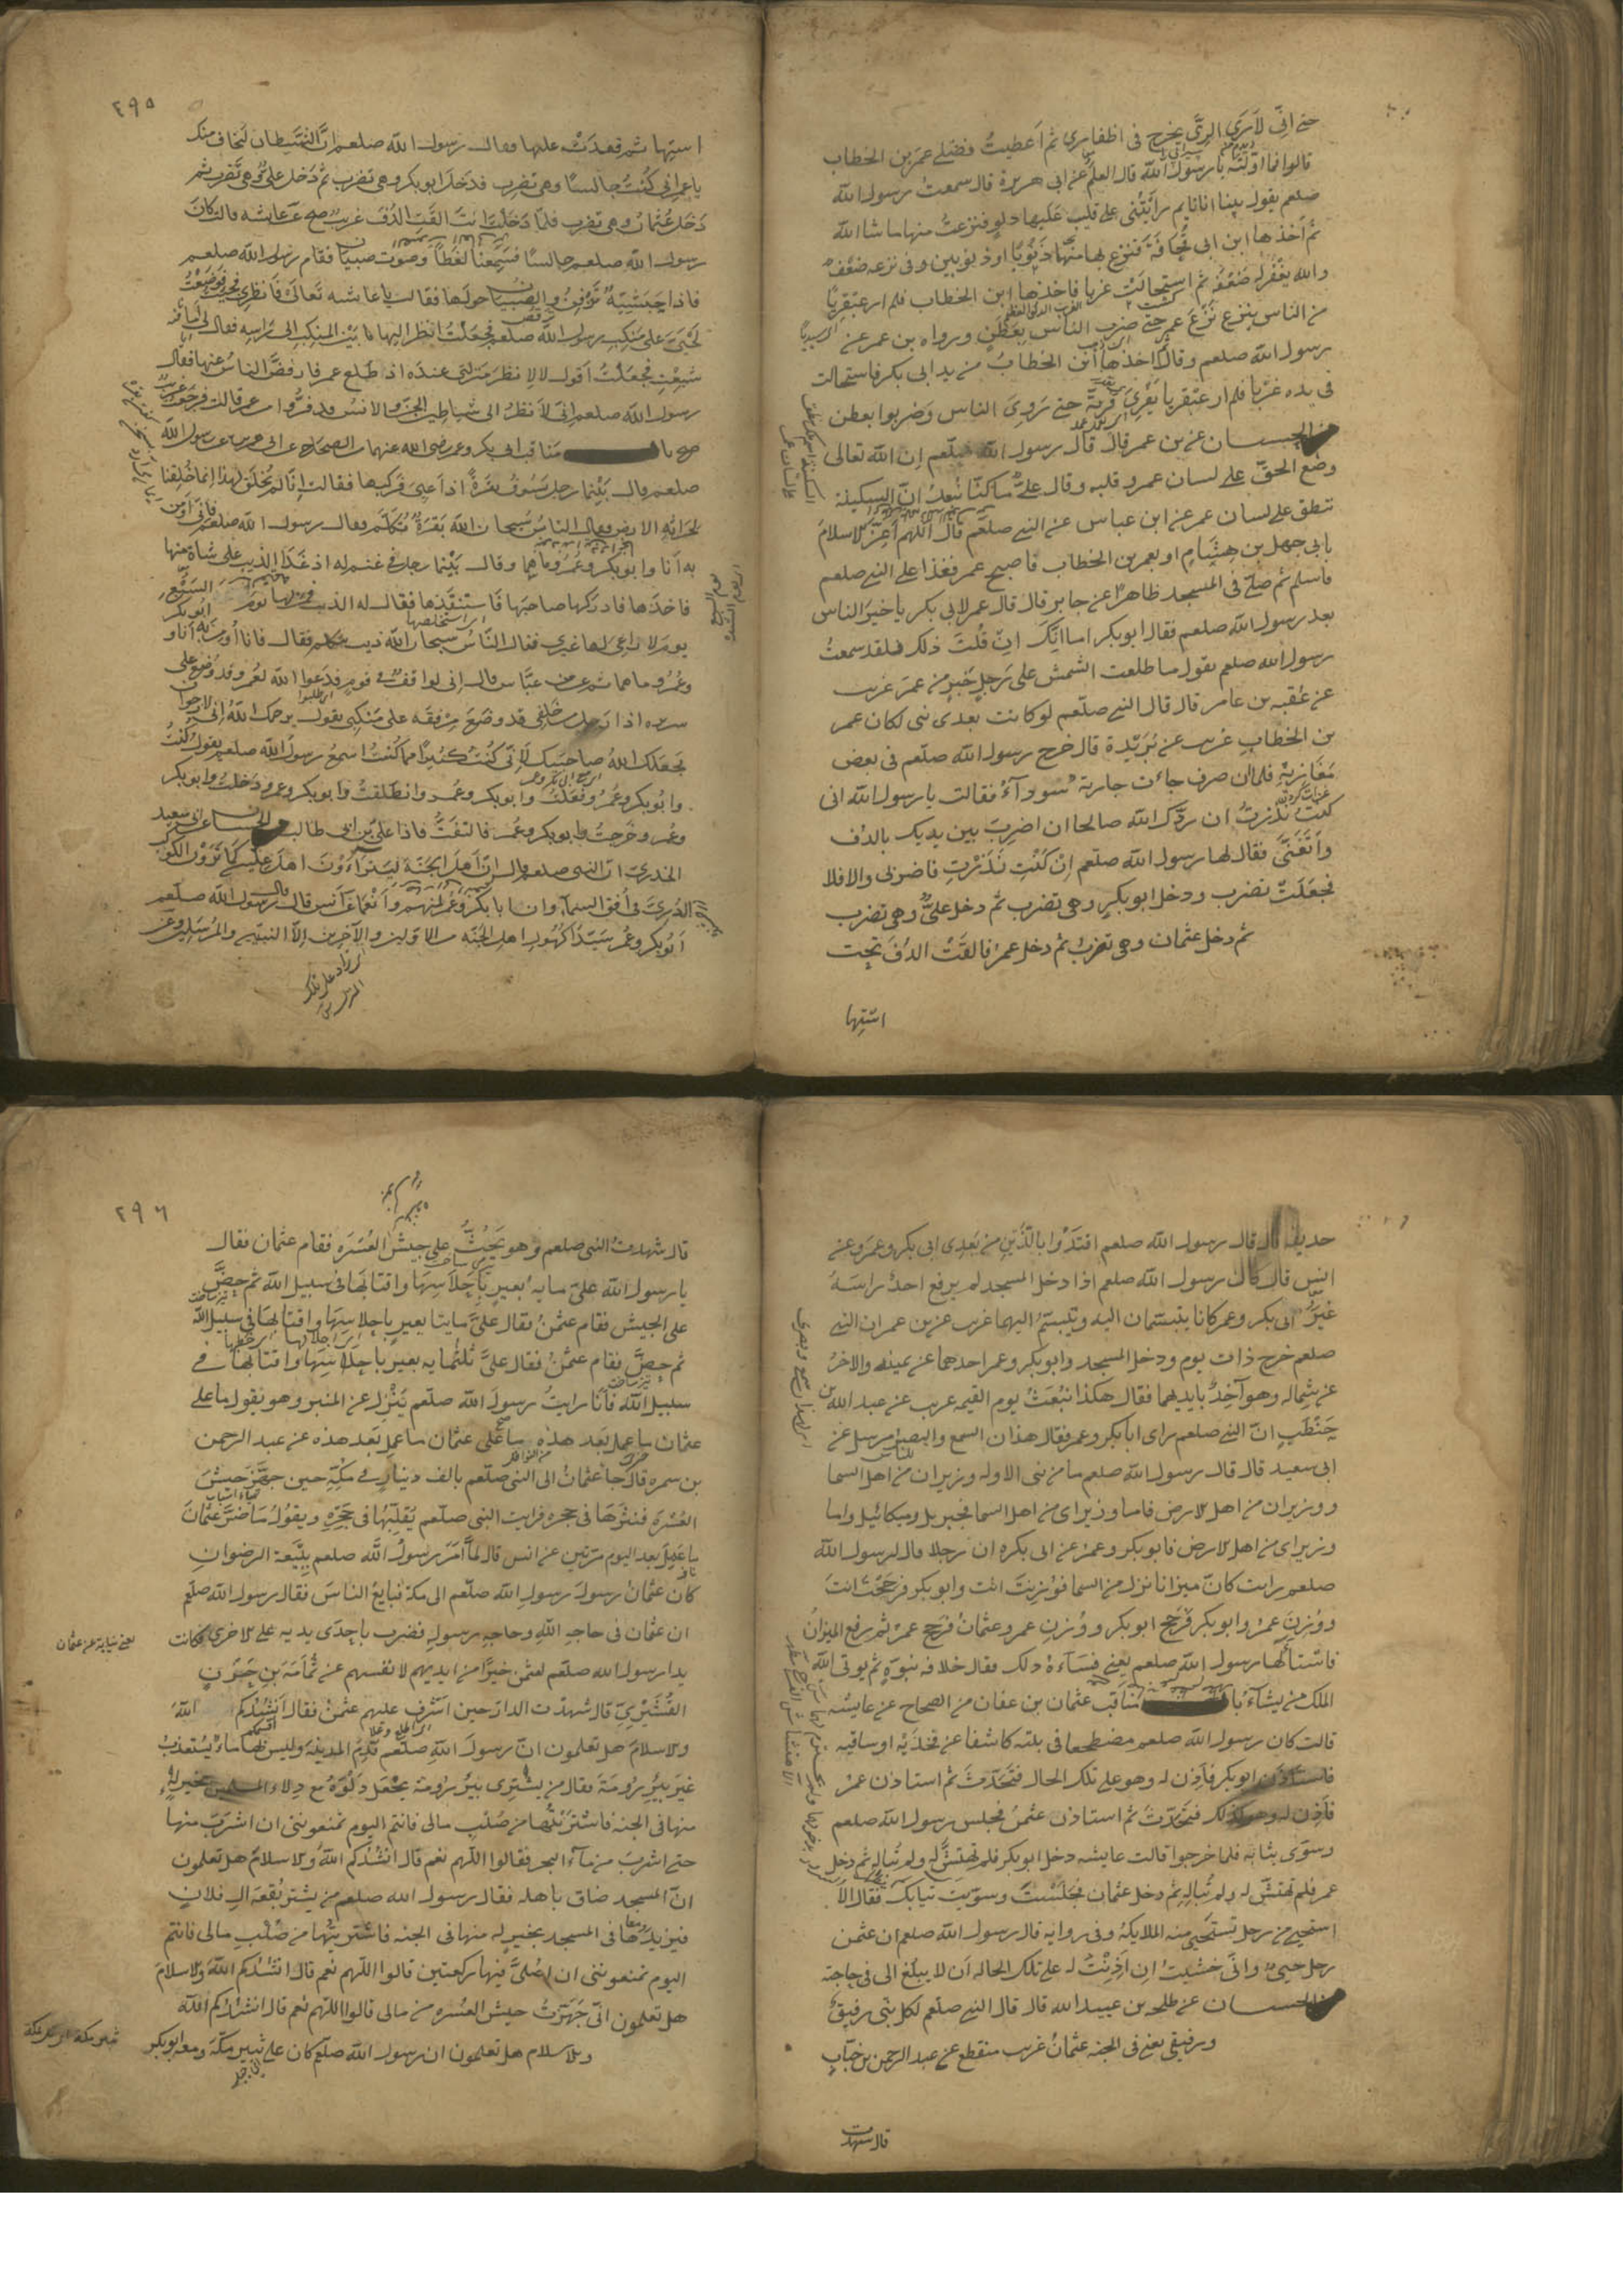 حتى اني لارى الرى يخرج في اظفارى ثم اعطيت فضلى عمر بن الخطاب
قالوا فما اولته يا رسول الله قال العلم عن ابى هريرة قال سمعت رسول الله
صلعم يقول بينا انا نايم رأيتنى على قليب عليها دلو فنزعت منها ما شا الله
ثم اخذها ابن ابى قحافة فنزع بها منها ذنوبا او ذنوبين وفى نزعه ضعف
والله يغفر له ضعفه ثم استحالت غربا فاخذها ابن الخطاب فلم ار عبقريا
من الناس ينزع نزع عمر حتى ضرب الناس بعطن ورواه بن عمر عن
رسول الله صلعم وقال ثم اخذها ابن الخطاب من يد ابى بكر فاستحالت
فى يده غربا فلم ار عبقريا يفرى فريه حتى روى الناس وضربوا بعطن
من الحسان عن بن عمر قال قال رسول الله صلعم ان الله تعالى
وضع الحق على لسان عمر وقلبه وقال على ما كنا نبعد ان السكينة
تنطق على لسان عمر عن ابن عباس عن النبى صلعم قال اللهم اعز الاسلام
بابى جهل بن هشام او بعمر بن الخطاب فاصبح عمر فغذا على النبى صلعم
فاسلم ثم صلى فى المسجد ظاهرا عن جابر قال قال عمر لابى بكر يا خير الناس
بعد رسول الله صلعم فقال ابو بكر اما انك ان قلت ذلك فلقد سمعت
رسول الله صلعم يقول ما طلعت الشمش على رجل خير من عمر غريب
عن عقبه بن عامر قال قال النبى صلعم لو كانت بعدى نبى لكان عمر
بن الخطاب غريب عن بريدة قال خرج رسول الله صلعم فى بعض
مغازيه فلما ان صرف جاءت جارية سوداء فقالت يا رسول الله انى
كنت نذرت ان ردك الله صالحا ان اضرب بين يديك بالدف
واتغنى فقال لها رسول الله صلعم ان كنت نذرت فاضربى والا فلا
فجعلت تضرب ودخل ابو بكر وهى تضرب ثم دخل على وهى تضرب
ثم دخل عثمان وهى تضرب ثم دخل عمر فالقت الدف تحت
استها
٢٩٥
استها ثم قعدت عليها فقال رسول الله صلعم ان الشيطان ليخاف منك
يا عمر انى كنت جالسا وهى تضرب فدخل ابو بكر وهى تضرب ثم دخل على وهى تضرب ثم
دخل عثمان وهى تضرب فلما دخلت انت القت الدف غريب صح عن عايشه قالت كان
رسول الله صلعم جالسا فسمعنا لغطا وصوت صبيان فقام رسول الله صلعم
فاذا حبشية تزفن والصبيان حولها فقال يا عايشه تعالى فانظرى فجئت فوضعت
لحيى على منكب رسول الله صلعم فجعلت انظر اليها ما بين المنكب الى راسه فقال لى اما
شبعت فجعلت اقول لا لانظر منزلتى عنده اذ طلع عمر فارفض الناس عنها فقال
رسول الله صلعم انى لانظر الى شياطين الجن والانس قد فروا من عمر قالت فرجعت
صح با مناقب ابى بكر وعمر رضى الله عنهما من الصحاح عن ابى هريرة عن رسول الله
صلعم قال بينما رجل يسوق بقرة اذا عيى فركبها فقالت انا لم نخلق لهذا انما خلقنا
لحراثه الارض فقال الناس سبحان الله بقرة تتكلم فقال رسول الله صلعم فانى اومن
به انا وابو بكر وعمر وما هما وقال بينما رجل فى غنم له اذ غدا الذيب على شاة منها
فاخذها فادركها صاحبها فاستنقذها فقال له الذيب فمن لها يوم السبع
يوم لا راعى لها غيرى فقال الناس سبحان الله ذيب يتكلم فقال فانا اومن به انا وابو بكر
وعمر وما هما ثم عن بن عباس قال انى لواقف فى قوم فدعوا الله لعمر وقد وضع على
سريره اذا رجل من خلفى قد وضع مرفقه على منكبى يقول يرحمك الله انى لارجوا ان
يجعلك الله مع صاحبيك لانى كنت كثيرا مما كنت اسمع رسول الله صلعم يقول كنت
وابو بكر وعمر وفعلت وابو بكر وعمر وانطلقت وابو بكر وعمر ودخلت وابو بكر
وعمر وخرجت وابو بكر وعمر فالتفت فاذا على بن ابى طالب من الحسان عن ابى سعيد
الخدرى ان النبى صلعم قال ان اهل الجنة ليتراءون اهل عليين كما ترون الكوكب
الدرى فى افق السماء وان ابا بكر وعمر منهم وانعما عن انس قال قال رسول الله صلعم
ابو بكر وعمر سيدا كهول اهل الجنه من الاولين والاخرين الا النبيين والمرسلين عن
حديفه قال قال رسول الله صلعم اقتدوا بالذين من بعدى ابى بكر وعمر وعن
انس قال كان رسول الله صلعم اذا دخل المسجد لم يرفع احد راسه
غير ابى بكر وعمر كانا يتبسمان اليه ويتبسم اليهما غريب عن بن عمر ان النبى
صلعم خرج ذات يوم ودخل المسجد وابو بكر وعمر احدهما عن يمينه والاخر
عن شماله وهو آخذ بايديهما فقال هكذا نبعث يوم القيمه غريب عن عبد الله بن
حنطب ان النبى صلعم راى ابا بكر وعمر فقال هذان السمع والبصر مرسل عن
ابى سعيد قال قال رسول الله صلعم ما من نبى الا وله وزيران من اهل السما
ووزيران من اهل الارض فاما وزيراى من اهل السما فجبريل وميكائيل واما
وزيراى من اهل الارض فابو بكر وعمر عن ابى بكره ان رجلا قال لرسول الله
صلعم رايت كان ميزانا نزل من السما فوزنت انت وابو بكر فرجحت انت
ووزن عمر وابو بكر فرجح ابو بكر ووزن عمر وعثمان فرجح عمر ثم رفع الميزان
فاستاء لها رسول الله صلعم يعنى فساءه ذلك فقال خلافه نبوه ثم يوتى الله
الملك من يشاء با مناقب عثمان بن عفان من الصحاح عن عايشه
قالت كان رسول الله صلعم مضطجعا فى بيته كاشفا عن فخذيه او ساقيه
فاستاذن ابو بكر فاذن له وهو على تلك الحال فتحدث ثم استاذن عمر
فاذن له وهو كذلك فتحدث ثم استاذن عثمن فجلس رسول الله صلعم
وسوى ثيابه فلما خرجوا قالت عايشه دخل ابو بكر فلم تهتش له ولم تباله ثم دخل
عمر فلم تهتش له ولم تباله ثم دخل عثمان فجلست وسويت ثيابك فقال الا
استحيى من رجل تستحيى منه الملايكة وفى روايه قال رسول الله صلعم ان عثمن
رجل حيى وانى خشيت ان اذنت له على تلك الحاله ان لا يبلغ الى فى حاجته
من الحسان عن طلحه بن عبيد الله قال قال النبى صلعم لكل نبى رفيق
ورفيقى يعنى فى الجنه عثمان غريب منقطع عن عبد الرحمن بن خباب
قال شهدت
٢٩٦
قال شهدت النبى صلعم وهو يحث على جيش العسره فقام عثمان فقال
يا رسول الله على مايه بعير باحلاسها واقتابها فى سبيل الله ثم حض
على الجيش فقام عثمن فقال على مايتا بعير باحلاسها واقتابها فى سبيل الله
ثم حض فقام عثمن فقال على ثلثمايه بعير باحلاسها واقتابها فى
سبيل الله فانا رايت رسول الله صلعم ينزل عن المنبر وهو يقول ما على
عثمان ما عمل بعد هذه ما على عثمان ما عمل بعد هذه عن عبد الرحمن
بن سمره قال جا عثمان الى النبى صلعم بالف دينار فى كمه حين جهز جيش
العسره فنثرها فى حجره فرايت النبى صلعم يقلبها فى حجره ويقول ما ضر عثمان
ما عمل بعد اليوم مرتين عن انس قال لما امر رسول الله صلعم ببيعة الرضوان
كان عثمان رسول رسول الله صلعم الى مكة فبايع الناس فقال رسول الله صلعم
ان عثمان فى حاجه الله وحاجه رسوله فضرب باحدى يديه على الاخرى فكانت
يعنى نيابة عن عثمان
يدا رسول الله صلعم لعثمن خيرا من ايديهم لانفسهم عن ثمامة بن حزن
القشيرى قال شهدت الدار حين اشرف عليهم عثمن فقال انشدكم الله
والاسلام هل تعلمون ان رسول الله صلعم قدم المدينة وليس بها ماء يستعذب
غير بير رومة فقال من يشترى بير رومة يجعل دلوه مع دلاء المسلمين بخير له
منها فى الجنه فاشتريتها من صلب مالى فانتم اليوم تمنعوننى ان اشرب منها
حتى اشرب من ماء البحر فقالوا اللهم نعم قال انشدكم الله والاسلام هل تعلمون
ان المسجد ضاق باهله فقال رسول الله صلعم من يشتر بقعة ال فلان
فيزيدها فى المسجد بخير له منها فى الجنه فاشتريتها من صلب مالى فانتم
اليوم تمنعوننى ان اصلى فيها ركعتين قالوا اللهم نعم قال انشدكم الله والاسلام
هل تعلمون انى جهزت جيش العسره من مالى قالوا اللهم نعم قال انشدكم الله
والاسلام هل تعلمون ان رسول الله صلعم كان على ثبير مكة ومعه ابو بكر